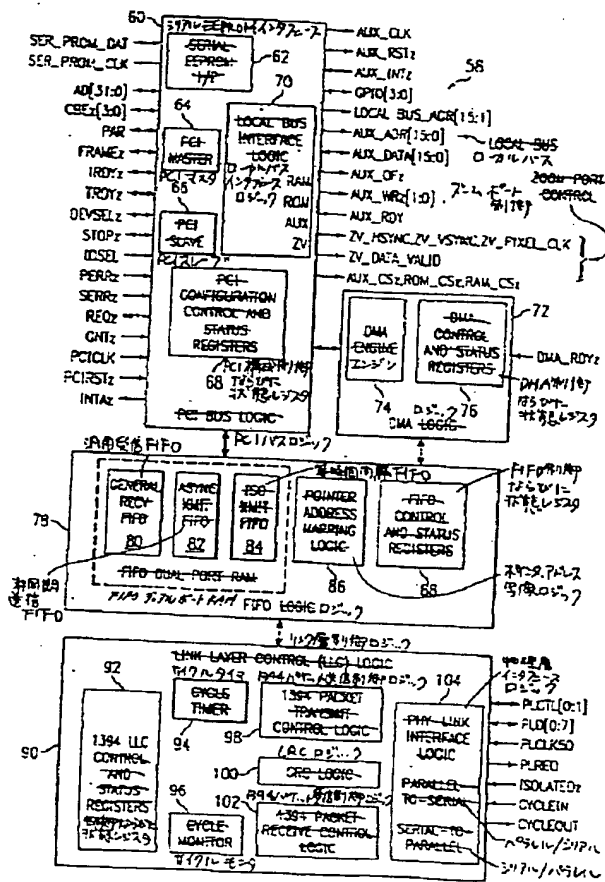 60
シリアルEEPROMインタフェース
SER_PROM_DAT
SER_PROM_CLK
SERIAL
EEPROM
I/F
62
AD[31:0]
CBEz[3:0]
PAR
FRAMEz
IRDYz
TRDYz
DEVSELz
STOPz
IDSEL
PERRz
SERRz
REQz
GNTz
PCICLK
PCIRSTz
INTAz
64
PCI
MASTER
PCIマスタ
PCI
SLAVE
PCIスレーブ
70
LOCAL BUS
INTERFACE
LOGIC
ローカルバス
インタフェース
ロジック
RAM
ROM
AUX
ZV
PCI
CONFIGURATION
CONTROL AND
STATUS
REGISTERS
68
PCI BUS LOGIC
PCIバスロジック
AUX_CLK
AUX_RSTz
AUX_INTz
GPIO[3:0]
LOCAL BUS_ADR[15:1]
AUX_ADR[15:0]
AUX_DATA[15:0]
AUX_OEz
AUX_WRz[1:0]
AUX_RDY
ZV_HSYNC,ZV_VSYNC,ZV_PIXEL_CLK
ZV_DATA_VALID
AUX_CSz,ROM_CSz,RAM_CSz
58
LOCAL BUS
ローカルバス
ZOOM PORT
CONTROL
ズームポート
制御
72
DMA
ENGINE
エンジン
74
DMA
CONTROL
AND STATUS
REGISTERS
76
DMA_RDYz
DMA制御
ならびに
状態レジスタ
ロジック
DMA LOGIC
汎用受信FIFO
78
GENERAL
RECV
FIFO
80
ASYNC
XMIT
FIFO
82
ISO
XMIT
FIFO
84
FIFO DUAL PORT RAM
FIFOデュアルポートRAM
非同期
送信
FIFO
POINTER
ADDRESS
MAPPING
LOGIC
86
FIFO
CONTROL
AND STATUS
REGISTERS
FIFO制御
ならびに
状態レジスタ
ポインタ、アドレス
写像ロジック
FIFO LOGIC ロジック
リンク層制御ロジック
LINK LAYER CONTROL (LLC) LOGIC
90
92
1394 LLC
CONTROL
AND
STATUS
REGISTERS
サイクルタイマ
CYCLE
TIMER
94
96
CYCLE
MONITOR
サイクルモニタ
1394 PACKET
TRANSMIT
CONTROL LOGIC
98
CRC ロジック
CRC LOGIC
100
102
1394 PACKET
RECEIVE CONTROL
LOGIC
104
PHY-LINK
INTERFACE
LOGIC
PARALLEL
TO-SERIAL
SERIAL-TO
PARALLEL
物理層
インタフェース
ロジック
PLCTL[0:1]
PLD[0:7]
PLCLK50
PLREQ
ISOLATEDz
CYCLEIN
CYCLEOUT
パラレル/シリアル
シリアル/パラレル